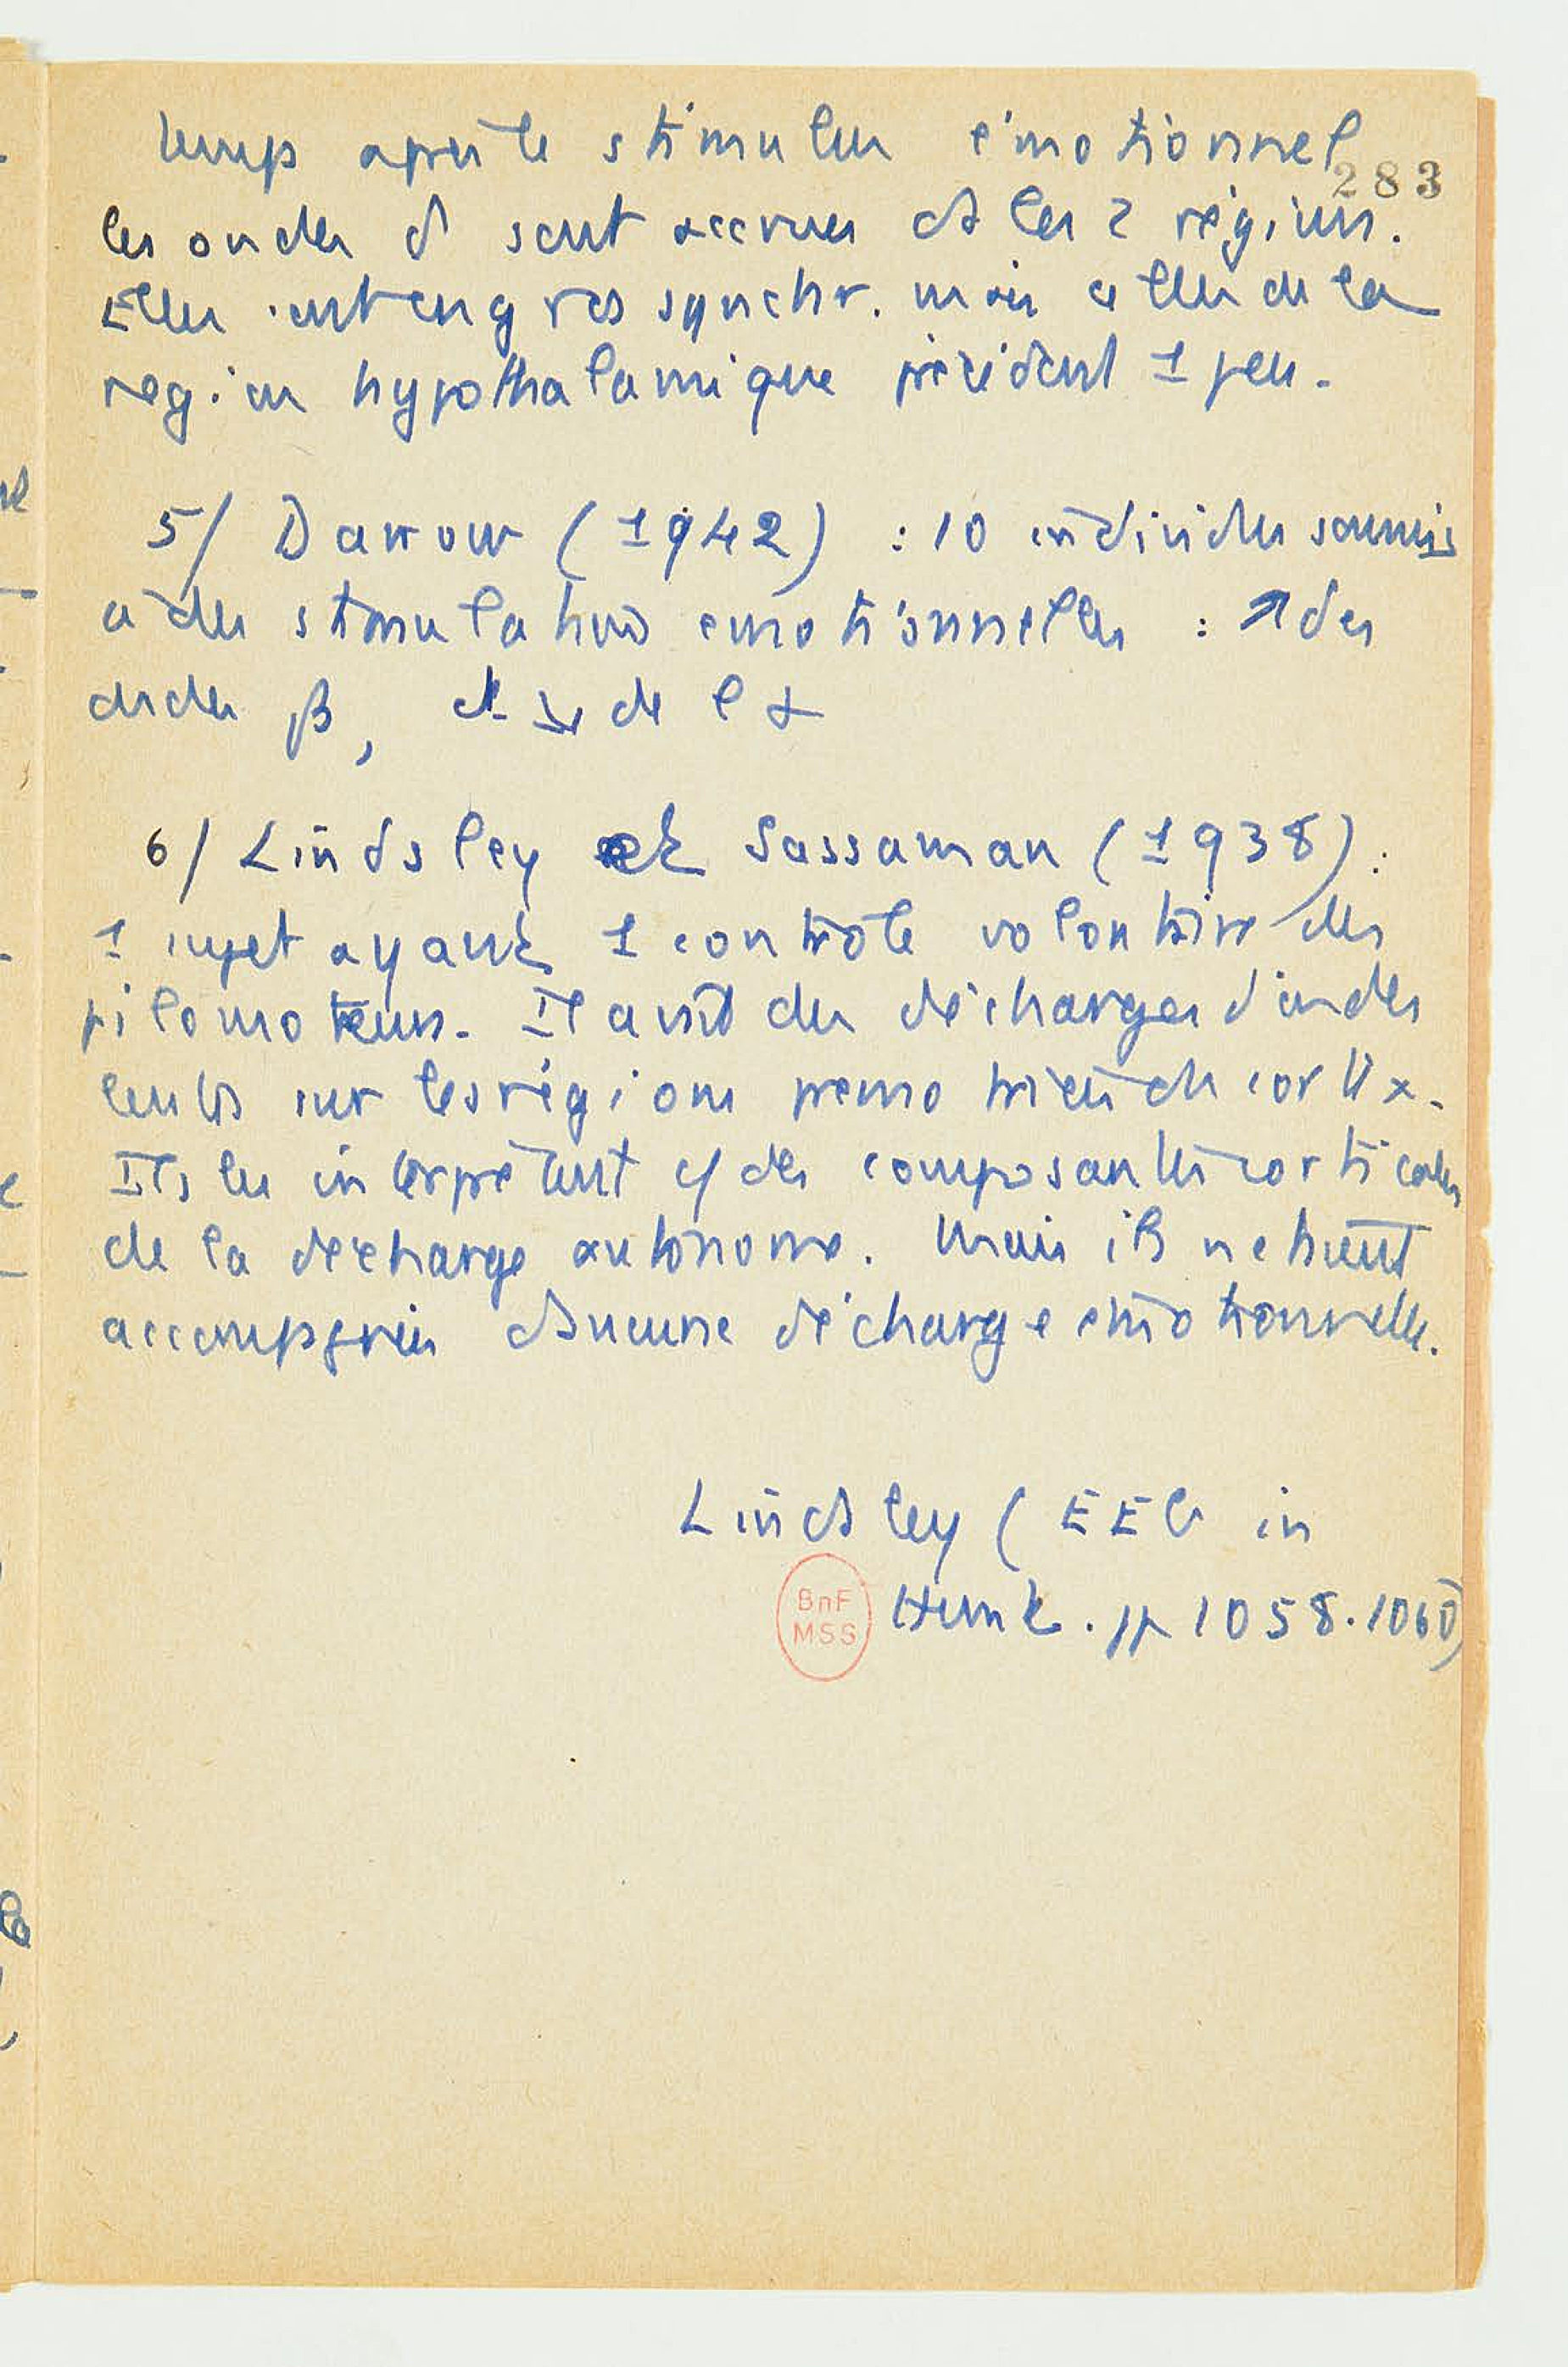 temps après le stimulus émotionnel
283
les ondes δ sont accrues ds les 2 régions.
Elles sont en gros synchr. mais celles de la
région hypothalamique précèdent 1 peu.
5/ Darrow (1942) : 10 individus soumis
à des stimulations émotionnelles : ↗ des
ondes β, et ↘ de l'α
6/ Lindsley et Sassaman (1938) :
1 sujet ayant 1 contrôle volontaire des
pilomoteurs. Il avait des décharges d'ondes
lentes sur les régions prémotrices du cortex.
Ils les interprètent c/ des composantes corticales
de la décharge autonome. Mais ils n'étaient
accompagnées d'aucune décharge émotionnelle.
Lindsley (EEG in
Hunt. pp 1058.1060)
BnF
MSS